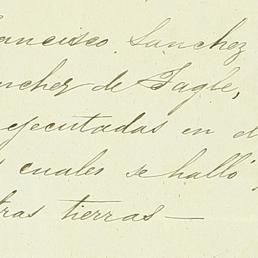 ancisco Sanchez
nchez de Tagle,
ejecutadas en
cuales se halló
tras tierras —